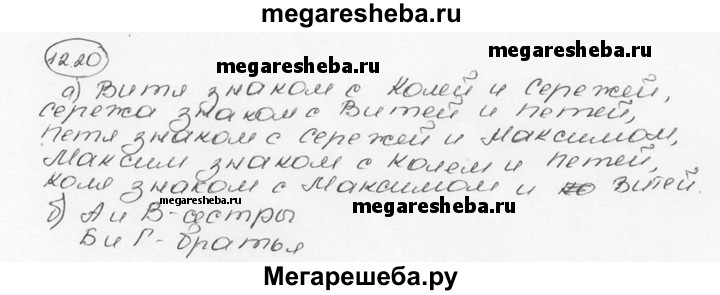 megaresheba.ru
1220
а) Витя знаком с Колей и Сережей,
megaresheba.ru
Сережа знаком с Витей и Петей,
Петя знаком с Сережей и Максимом,
Максим знаком с Колем и Петей,
Коля знаком с Максимом и Витей.
б) А и В - сестры
megaresheba.ru
Б и Г - братья
Мегарешеба.ру